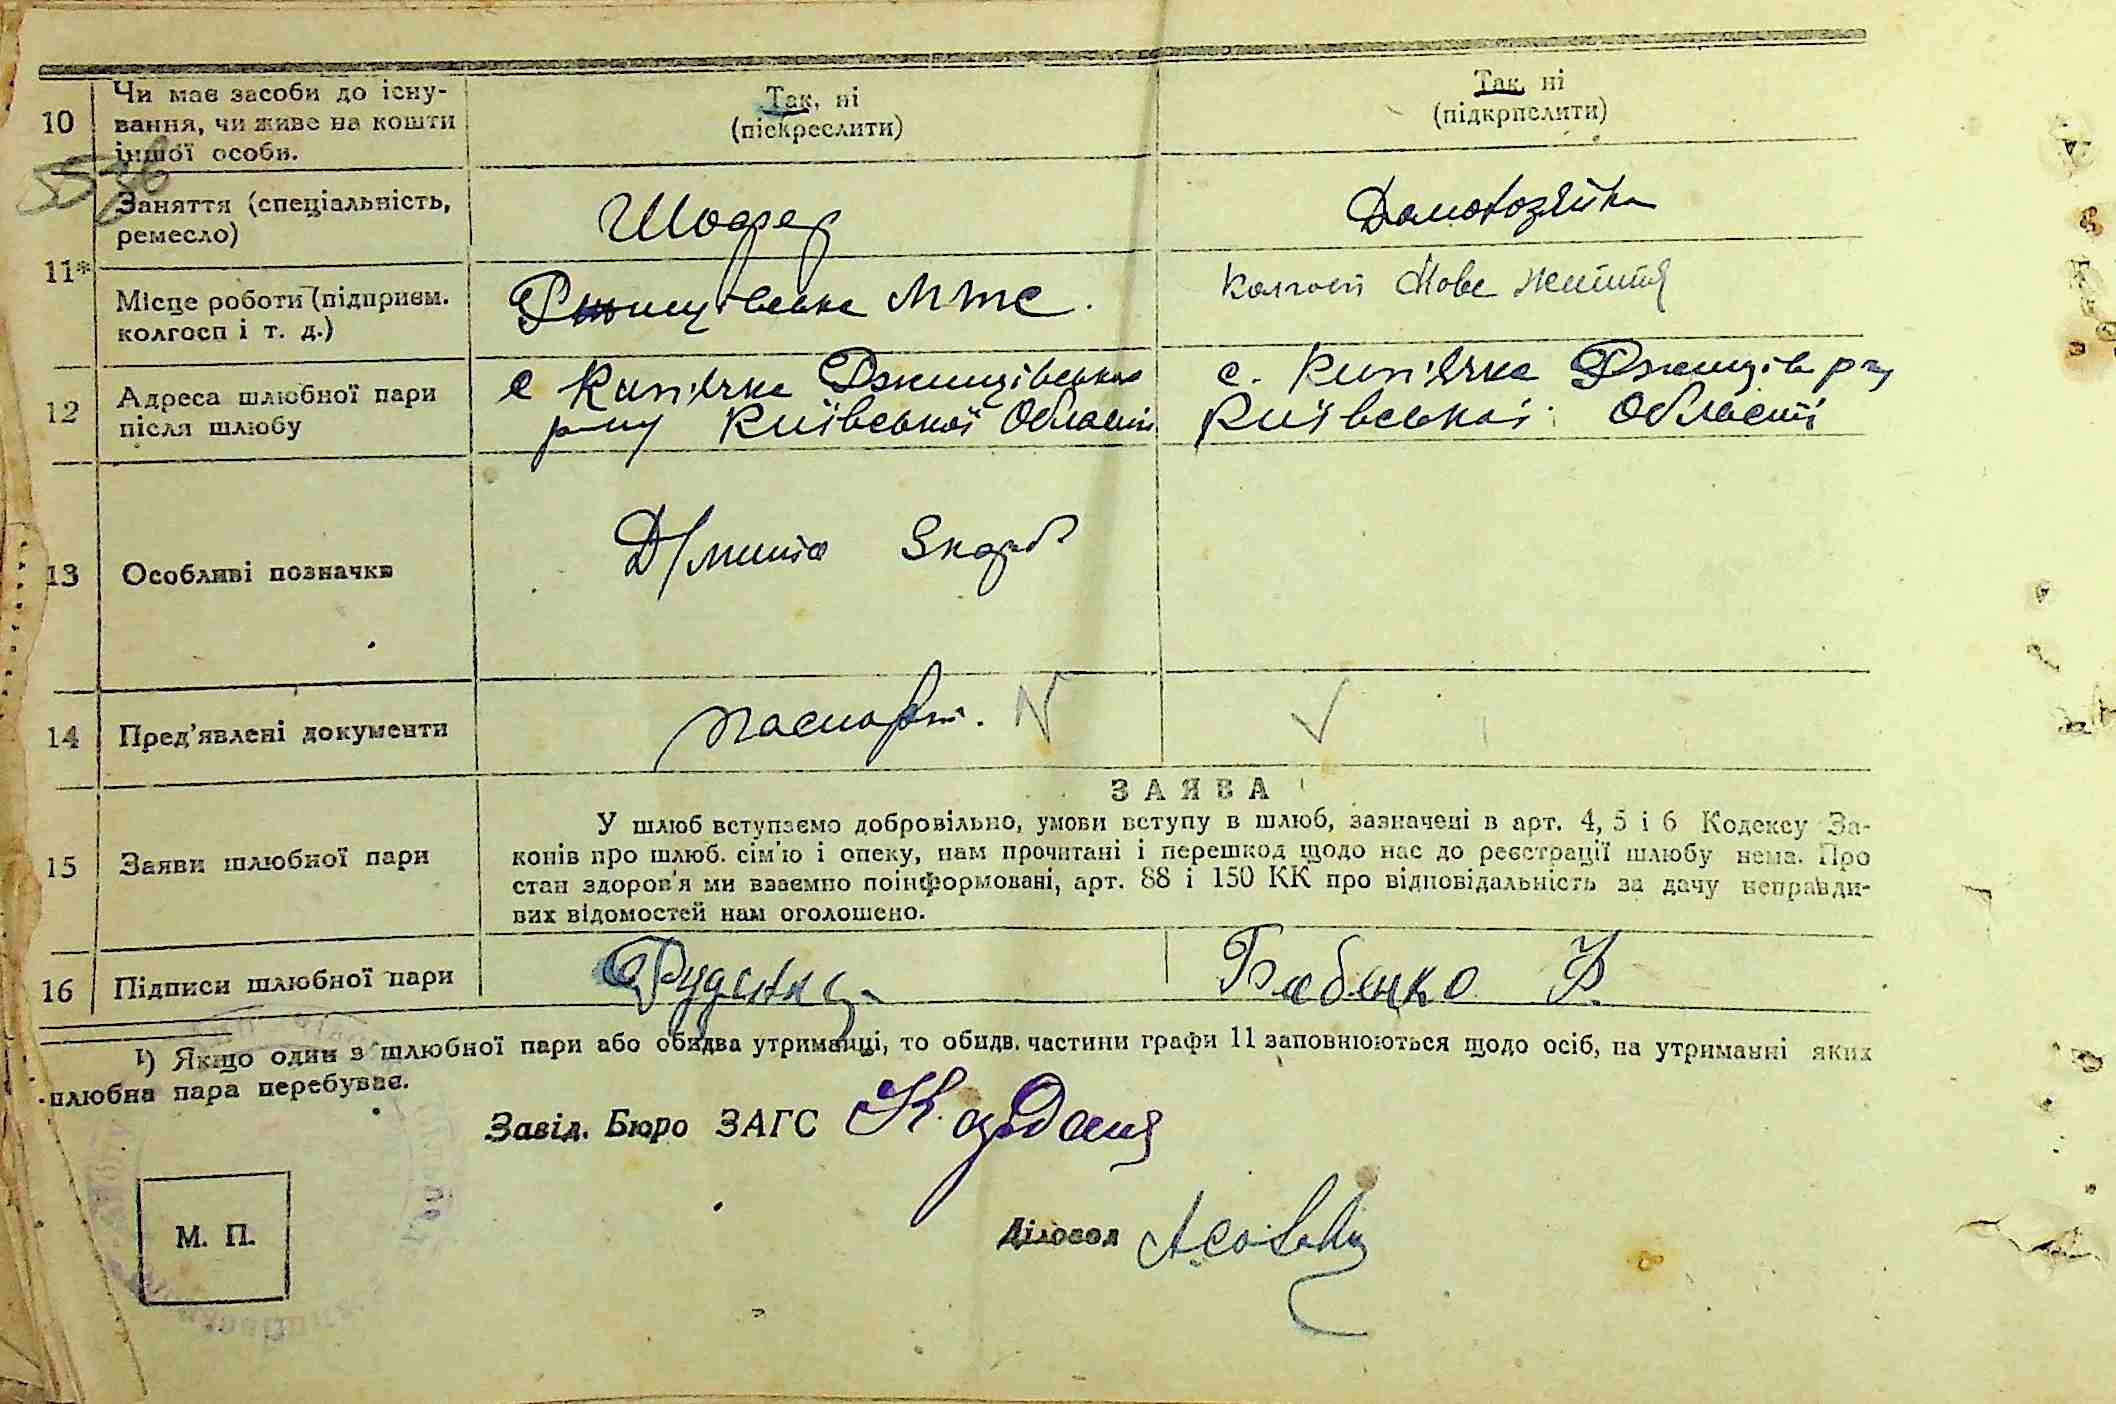 10 Чи має засоби до існу-
вання, чи живе на кошти
іншої особи.
Так, ні
(піскреслити)
Так, ні
(підкрпелити)
5536
11* Заняття (спеціальність,
ремесло)
Шофер
Домохозяйка
Місце роботи (підприєм.
колгосп і т. д.)
Ржищівське МТС.
колгосп Нове життя
12 Адреса шлюбної пари
після шлюбу
с Кип'ячка Ржищівського
р-ну Київської Області
с. Кип'ячка Ржищів р-ну
Київської Області
13 Особливі позначки
14 Пред'явлені документи
паспорт.
15 Заяви шлюбної пари
ЗАЯВА
У шлюб вступаємо добровільно, умови вступу в шлюб, зазначені в арт. 4, 5 і 6 Кодексу За-
конів про шлюб. сім'ю і опеку, нам прочитані і перешкод щодо нас до реєстрації шлюбу нема. Про
стан здоров'я ми взаємно поінформовані, арт. 88 і 150 КК про відповідальність за дачу неправди-
вих відомостей нам оголошено.
16 Підписи шлюбної пари
Бабенко
¹) Якщо один з шлюбної пари або обидва утриманці, то обидв. частини графи 11 заповнюються щодо осіб, на утриманні яких
шлюбна пара перебуває.
Завід. Бюро ЗАГС
Діловод
М. П.